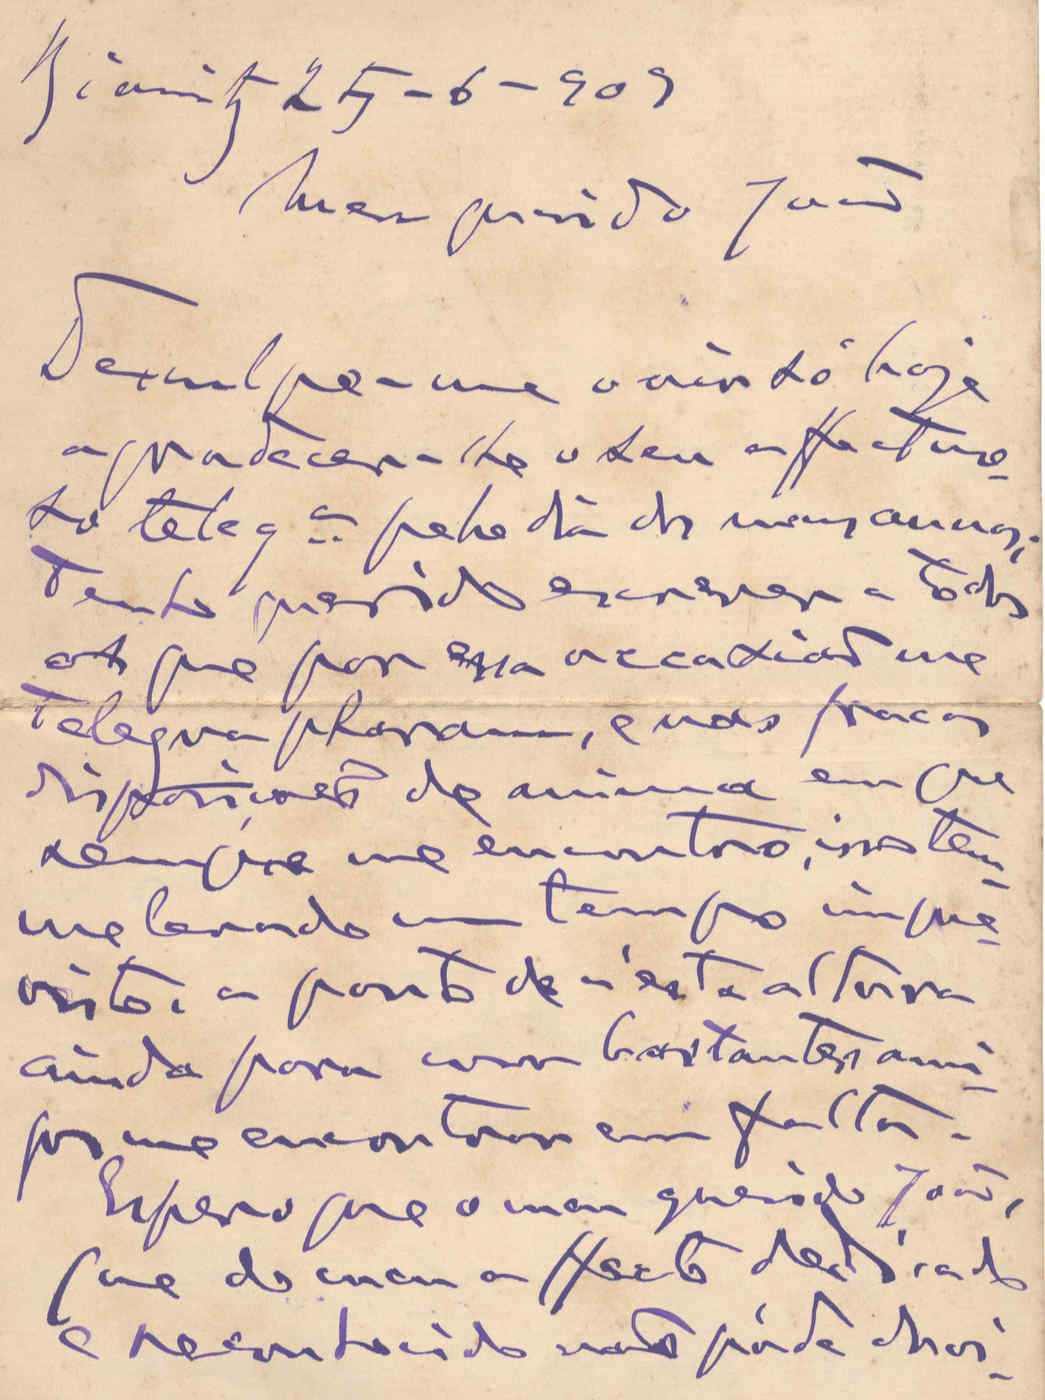 Biarritz 25-6-909
Meu querido João
Desculpa-me o vir só hoje
agradecer-te o teu affectuo-
so teleg.ª pelo dia dos meus annos;
Tenho querido escrever a todos
os que por essa occasião me
telegrapharam, e nas fracas
disposições de animo em que
sempre me encontro, isso tem-
me levado um tempo impre-
visto, a ponto de n'esta altura
ainda para com bastantes ami-
gos me encontrar em falta.
Espero que o meu querido João,
que do meu affecto dedicado
e reconhecido não póde duvi-